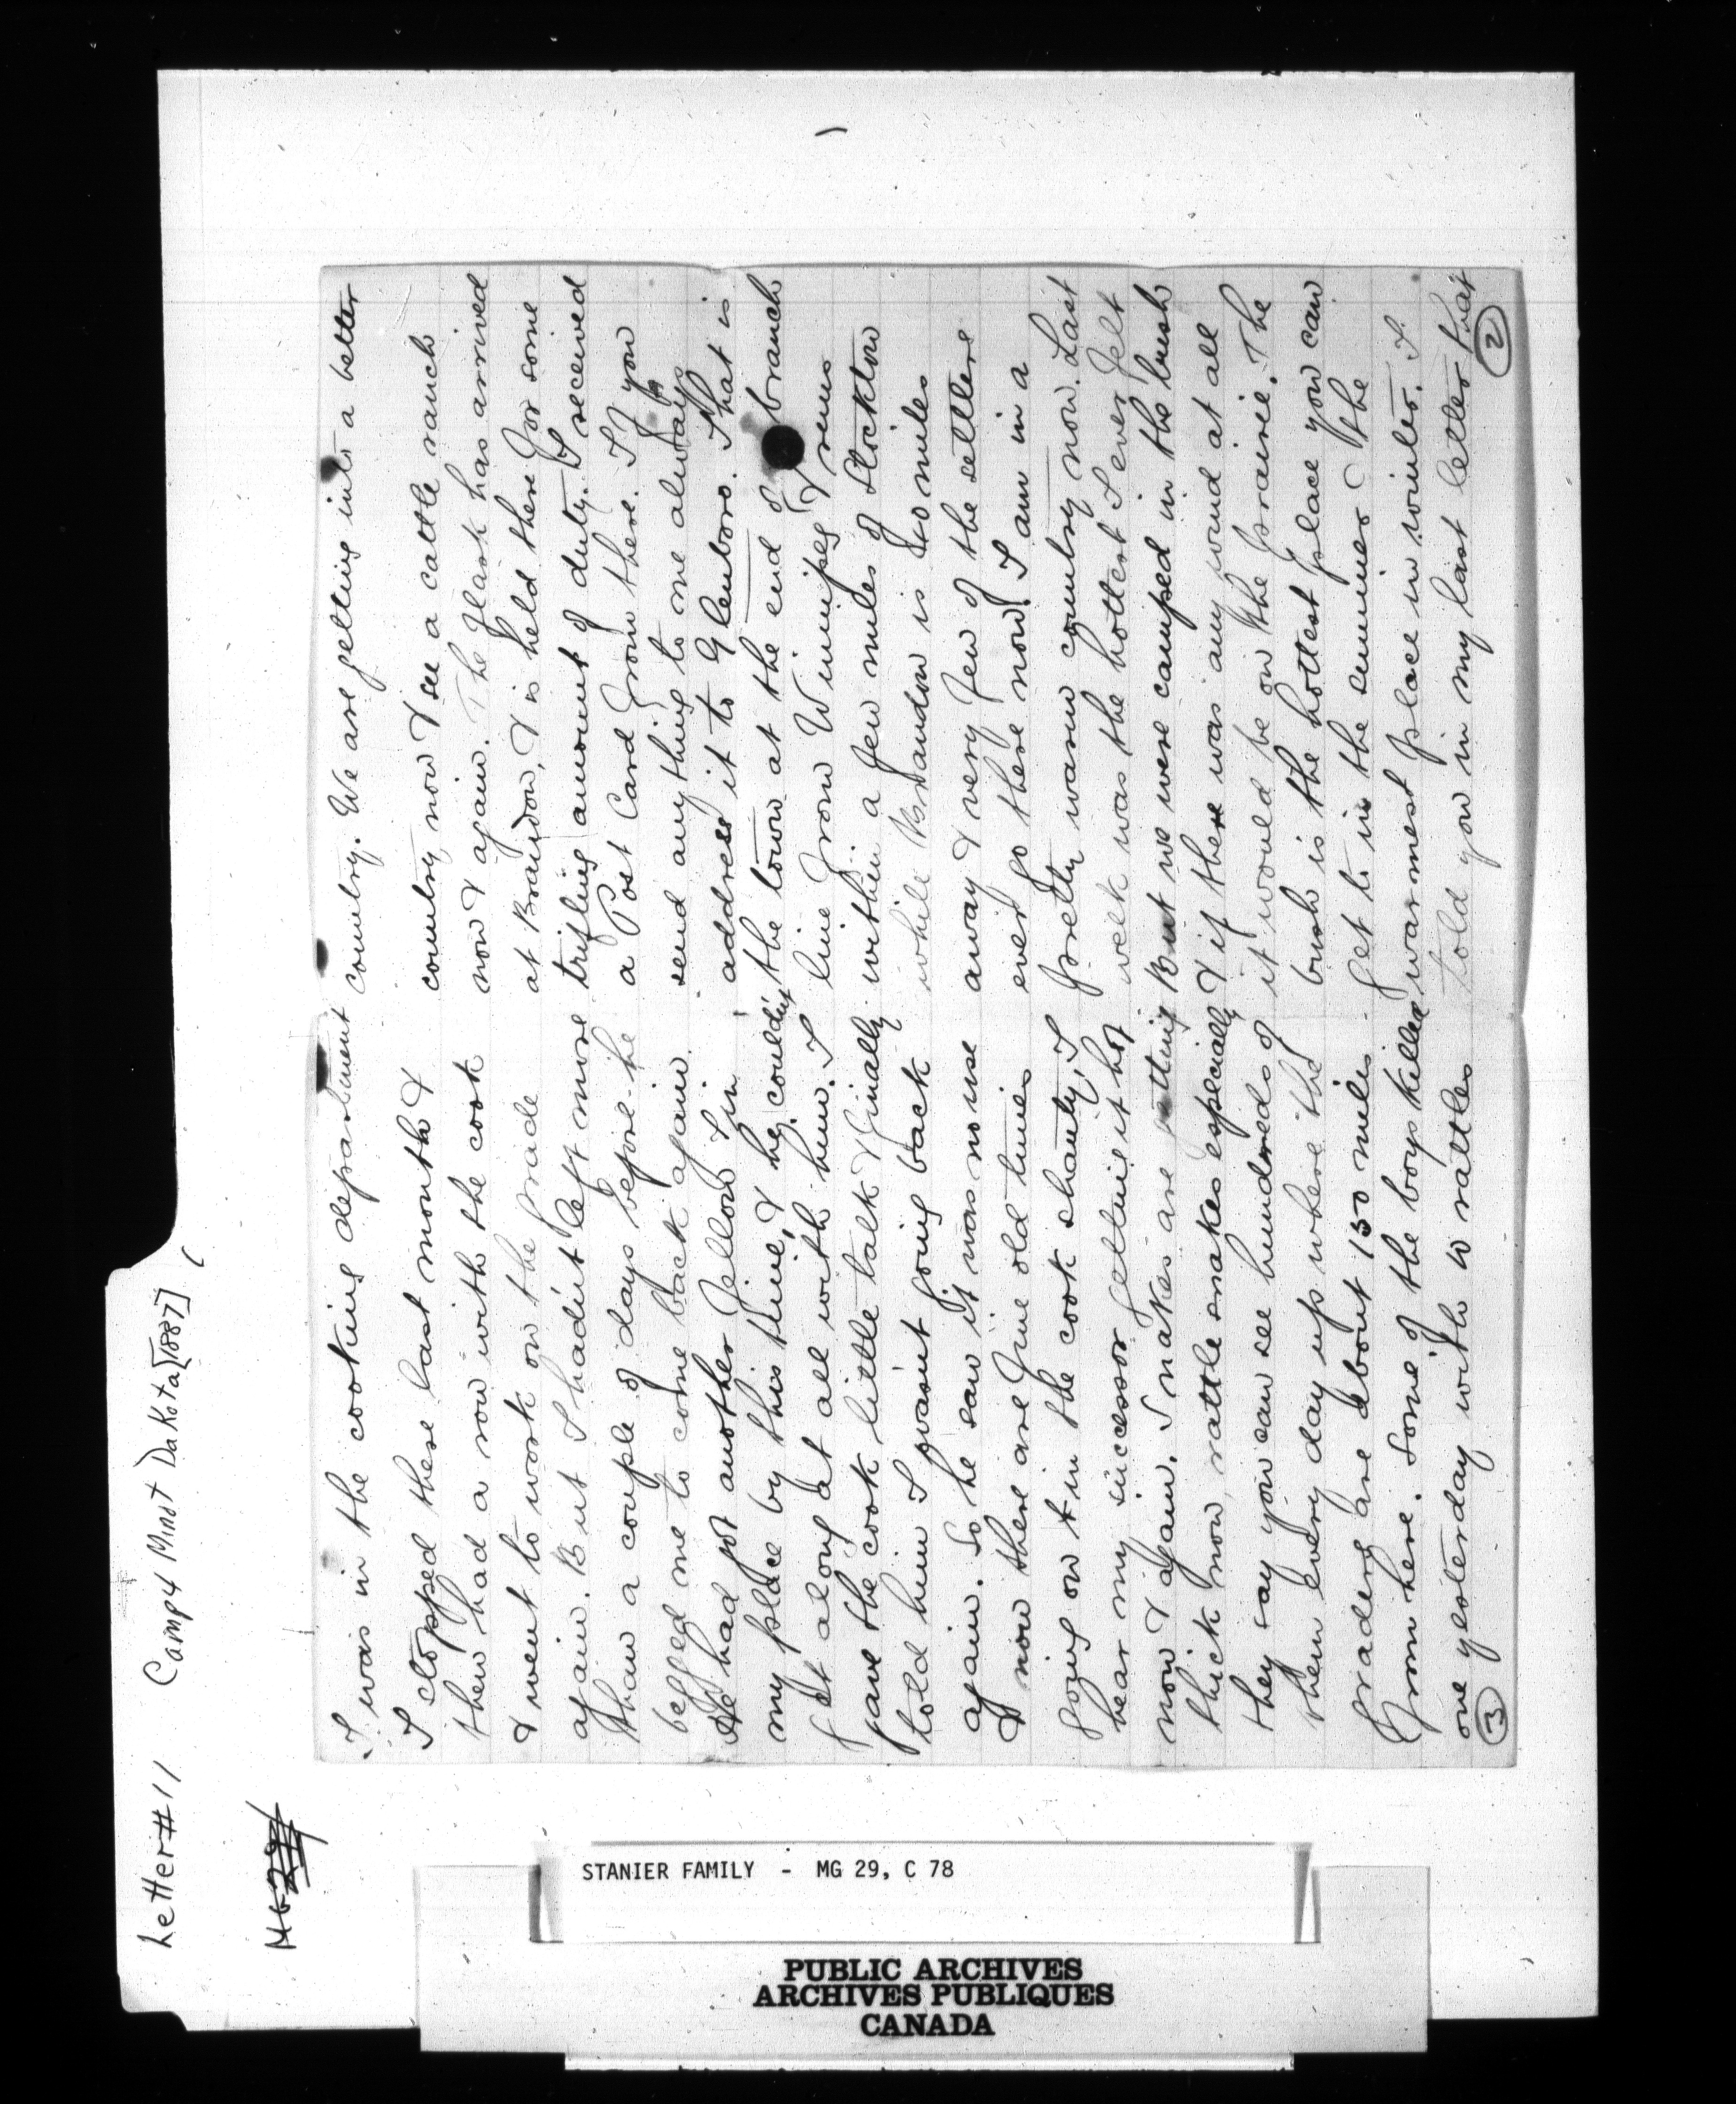 Letter #11 Camp 4 Minot Dakota [1887]
MG 29
country. We are getting into a better
country now & see a cattle ranch
now & again. The flask has arrived
at Brandon, & is held there for some
trifling amount of duty. I received
a Post Card from there. If you
send anything to me always
address it to Glenboro. That is
the town at the end of branch
line from Winnipeg & runs
within a few miles of Stockton
while Brandon is 40 miles
away & very few of the settlers
ever go there now. I am in a
pretty warm country now. Last
week was the hottest I ever felt
But we were camped in the bush
& if there was any wind at all
it would be on the prairie. The
bush is the hottest place you can
get to in the summer & the
warmest place in winter. I
told you in my last letter that
2
I was in the cooking department
I stopped these last month &
then had a row with the cook
& went to work on the grade
again. But I hadn't left more
than a couple of days before he
begged me to come back again
He had got another fellow in
my place by this time, & he couldn't
get along at all with him. I
gave the cook little talk & finally
told him I wasn't going back
again. So he saw it was no use
& now there are fine old times
going on in the cook shanty, I
hear my successor getting it hot
now & again. Snakes are getting
thick now, rattle snakes especially
they say you can see hundreds of
them every day up where the
graders are about 150 miles
from here. Some of the boys killed
one yesterday with 10 rattles
3
STANIER FAMILY - MG 29, C 78
PUBLIC ARCHIVES
ARCHIVES PUBLIQUES
CANADA